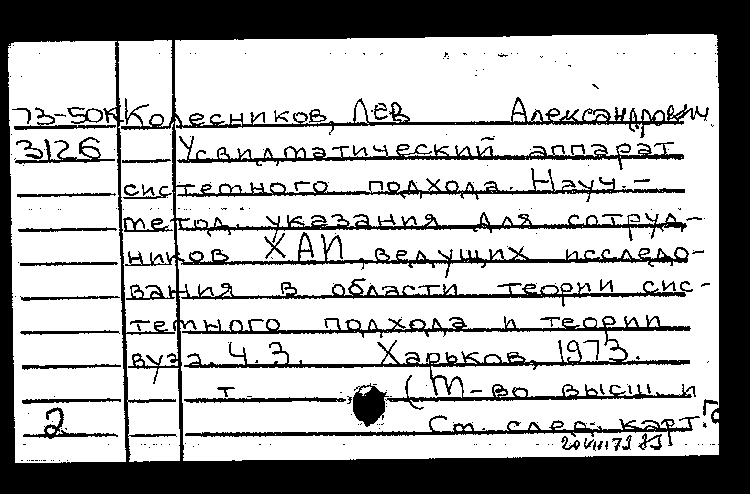 73-50К Колесников, Лев Александрович
3126 Усвидматический аппарат
системного подхода. Науч.-
метод. указания для сотруд-
ников ХАИ, ведущих исследо-
вания в области теории сис-
темного подхода и теории
вуза. Ч. 3. Харьков, 1973.
т (М-во высш. и
2 См. след. карт.